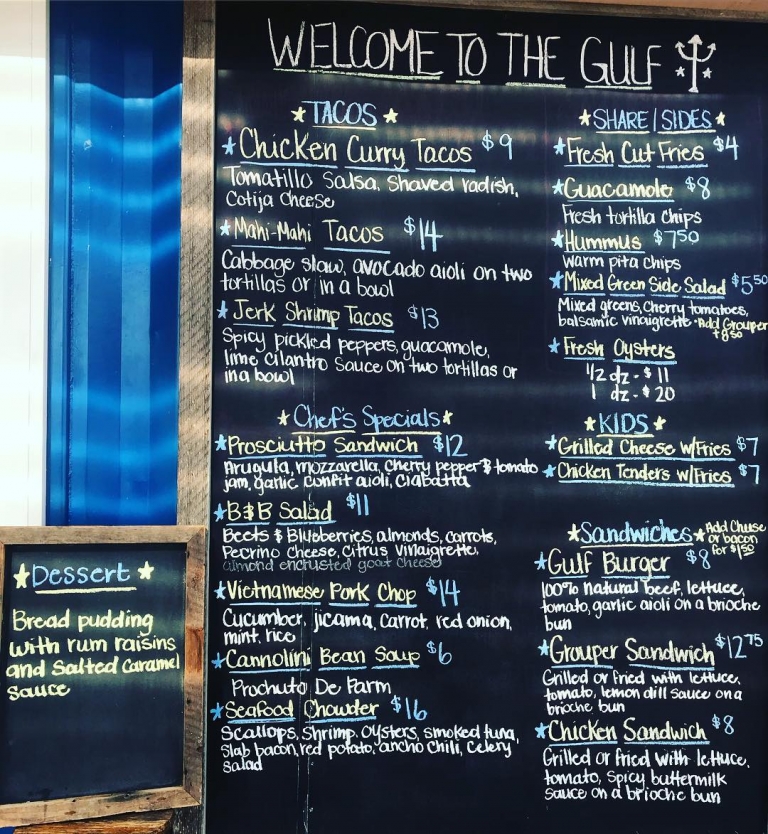 WELCOME TO THE GULF
TACOS
Chicken Curry Tacos $9
Tomatillo Salsa, Shaved radish,
Cotija Cheese
Mahi-Mahi Tacos $14
Cabbage slaw, avocado aioli on two
tortillas or in a bowl
Jerk Shrimp Tacos $13
Spicy pickled peppers, guacamole,
lime cilantro sauce on two tortillas or
in a bowl
Chef's Specials
Prosciutto Sandwich $12
Arugula, mozzarella, cherry pepper & tomato
jam, garlic confit aioli, Ciabatta
B&B Salad $11
Beets & Blueberries, almonds, carrots,
Pecrino cheese, citrus vinaigrette,
almond encrusted goat cheese
Vietnamese Pork Chop $14
Cucumber, jicama, carrot, red onion,
mint, rice
Cannolini Bean Soup $6
Prochuto De Parm
Seafood Chowder $16
Scallops, shrimp, oysters, smoked tuna,
slab bacon, red potato, ancho chili, celery
salad
SHARE/SIDES
Fresh Cut Fries $4
Guacamole $8
Fresh tortilla chips
Hummus $7.50
warm pita chips
Mixed Green Side Salad $5.50
Mixed greens, cherry tomatoes,
balsamic vinaigrette *Add Grouper
+8.50
Fresh Oysters
1/2 dz - $11
1 dz - $20
KIDS
Grilled Cheese w/Fries $7
Chicken Tenders w/Fries $7
Sandwiches
Add Cheese
or bacon
for $1.50
Gulf Burger $8
100% natural beef, lettuce,
tomato, garlic aioli on a brioche
bun
Grouper Sandwich $12.75
Grilled or fried with lettuce,
tomato, lemon dill sauce on a
brioche bun
Chicken Sandwich $8
Grilled or fried with lettuce,
tomato, spicy buttermilk
sauce on a brioche bun
Dessert
Bread pudding
with rum raisins
and salted caramel
sauce